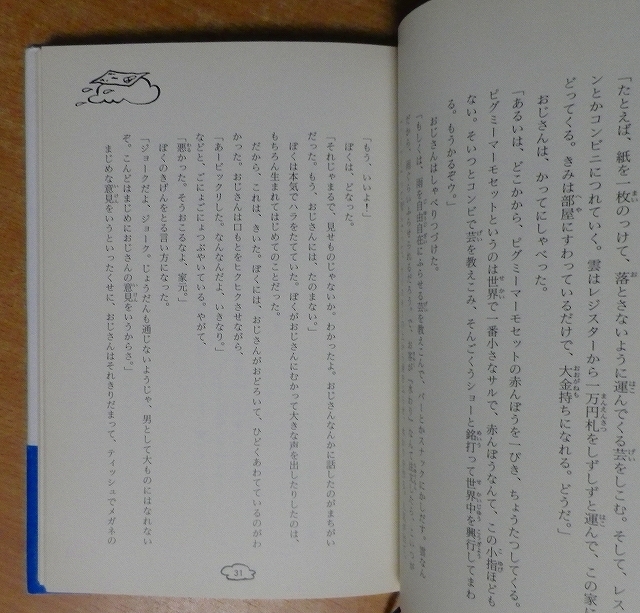 「たとえば、紙を一枚のっけて、落とさないように運んでくる芸をしこむ。そして、レス
ンとかコンビニにつれていく。雲はレジスターから一万円札をしずしずと運んで、この家に
どってくる。きみは部屋にすわっているだけで、大金持ちになれる。どうだ。」
おじさんは、かってにしゃべった。
「あるいは、どこかから、ピグミーマーモセットの赤んぼうを一ぴき、ちょうたつしてくる。
ピグミーマーモセットというのは世界で一番小さなサルで、赤んぼうなんて、この小指ほども
ない。そいつとコンビで芸を教えこみ、そんごくうショーと銘打って世界中を興行してまわ
る。もうかるぞウ。」
おじさんはしゃべりつづけた。
「もしくは、雨を自由自在にふらせる芸を教えこんで、バーとかスナックにかしだす。雲なん
「もう、いいよ!」
ぼくは、どなった。
「それじゃまるで、見せものじゃないか。わかったよ。おじさんなんかに話したのがまちがい
だった。もう、おじさんには、たのまない。」
ぼくは本気でハラをたてていた。ぼくがおじさんにむかって大きな声を出したりしたのは、
もちろん生まれてはじめてのことだった。
だから、これは、きいた。ぼくには、おじさんがおどろいて、ひどくあわてているのがわ
かった。おじさんは口もとをヒクヒクさせながら、
「あービックリした。なんなんだよ、いきなり。」
などと、ごにょごにょつぶやいている。やがて、
「悪かった。そうおこるなよ、家元。」
ぼくのきげんをとる言い方になった。
「ジョークだよ、ジョーク。じょうだんも通じないようじゃ、男として大ものにはなれない
ぞ。こんどはまじめにおじさんの意見をいうからさ。」
まじめな意見をいうといったくせに、おじさんはそれきりだまって、ティッシュでメガネの
31